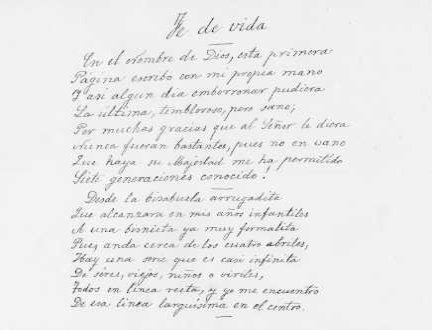 Fe de vida
En el Nombre de Dios, esta primera
Página escribo con mi propia mano
Y asi algun dia emborronar pudiera
La ultima, tembloroso, pero sano;
Por muchas gracias que al Señor le diera
Nunca fueran bastantes, pues no en vano
Que haya su Majestad me ha permitido
Siete generaciones conocido!
Desde la bisabuela arrugadita
Que alcanzara en mis años infantiles
A una bisnieta ya muy formalita
Pues, anda cerca de los cuatro abriles,
Hay una serie que es casi infinita
De séres, viejos, niños o viriles,
Todos en linea recta, y yo me encuentro
De esa linea larguísima en el centro.